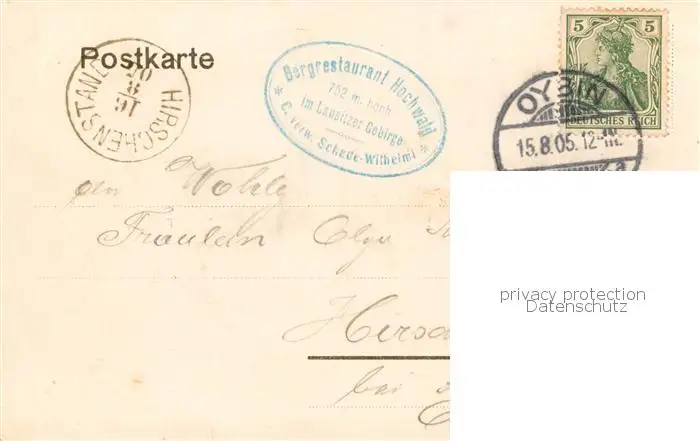 Postkarte
HIRSCHENSTAN
16 8 05
Bergrestaurant Hochwald
752 m. hoch
im Lausitzer Gebirge
C. verw. Schade-Wilhelmi
5 5
DEUTSCHES REICH
OYBIN
15.8.05. 12-1N.
a
Fräulein Olga
Hirsc
bei
privacy protection
Datenschutz